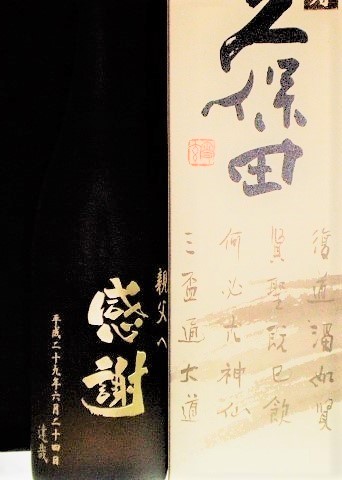 久保田
復道濁如賢
賢聖既已飲
何必求神仙
三盃通大道
親父へ
感謝
平成二十九年六月二十四日